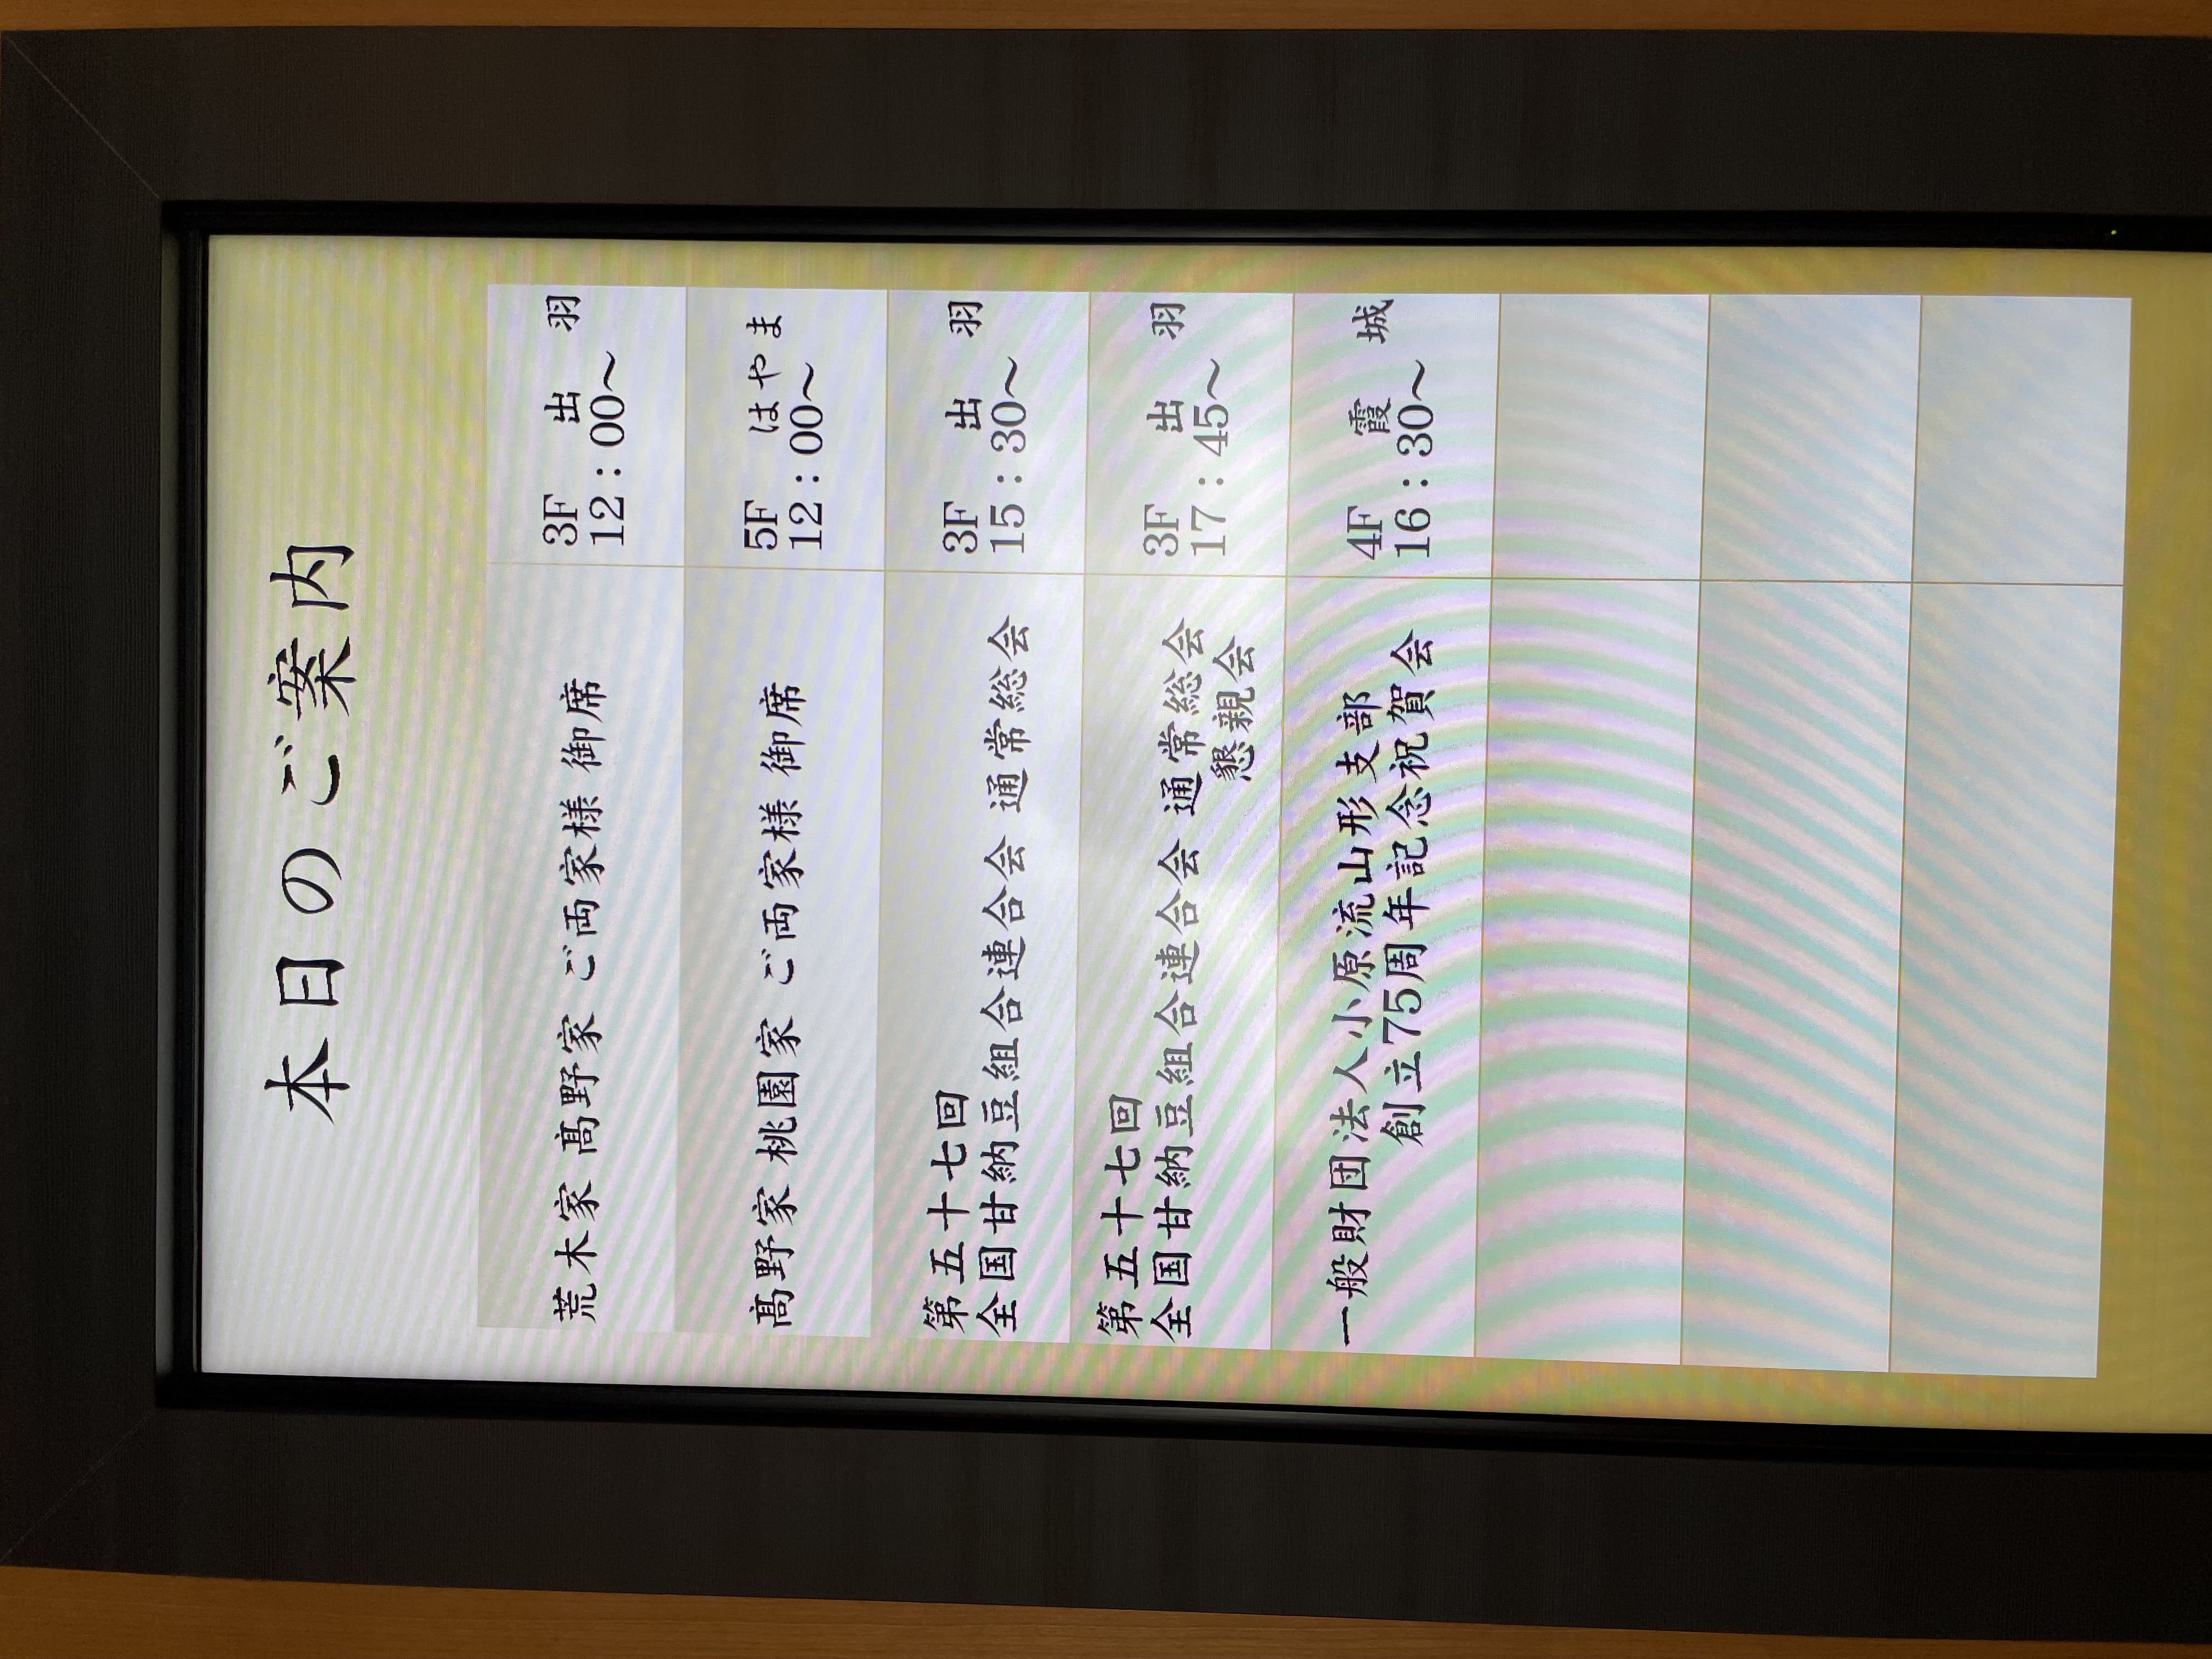 本日のご案内
荒木家 髙野家 ご両家様 御席
3F 出 羽
12：00～
髙野家 桃園家 ご両家様 御席
5F はやま
12：00～
第五十七回
全国甘納豆組合連合会 通常総会
3F 出 羽
15：30～
第五十七回
全国甘納豆組合連合会 通常総会
懇親会
3F 出 羽
17：45～
一般財団法人小原流山形支部
創立75周年記念祝賀会
4F 霞 城
16：30～